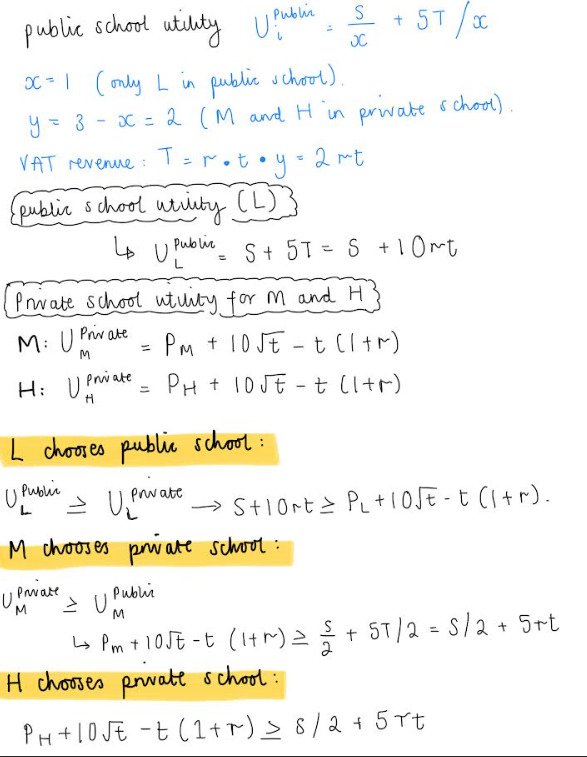 public school utility U_i^Public = S/x + 5T/x
x = 1 (only L in public school).
y = 3 - x = 2 (M and H in private school).
VAT revenue: T = r • t • y = 2rt
public school utility (L)
↳ U_L^Public = S + 5T = S + 10rt
Private school utility for M and H
M: U_M^Private = P_M + 10√t - t(1+r)
H: U_H^Private = P_H + 10√t - t(1+r)
L chooses public school:
U_L^Public ≥ U_L^Private → S + 10rt ≥ P_L + 10√t - t(1+r).
M chooses private school:
U_M^Private ≥ U_M^Public
↳ P_m + 10√t - t(1+r) ≥ S/2 + 5T/2 = S/2 + 5rt
H chooses private school:
P_H + 10√t - t(1+r) ≥ S/2 + 5rt